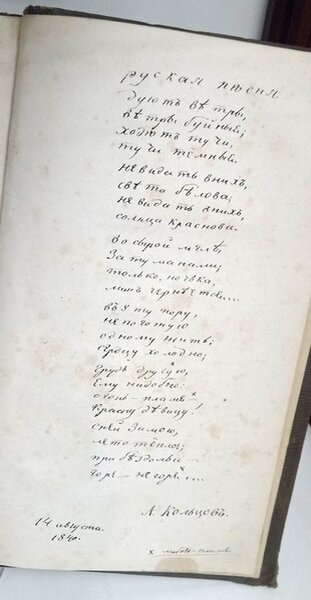 руская пѣсня.
дуютъ вѣтры,
вѣтры буйныѣ;
ходютъ тучи,
тучи тёмныѣ.
невидать внихъ,
свѣта бѣлова;
невидать внихъ,
солнца Краснова.
во сырой мглѣ,
За туманами;
только, ночька,
лишь чернѣется...
въ эту пору,
непогожую
одному жить;
сердцу холодно;
грудь другую,
Ему надобно:
огонь-пламя!
Красну дѣвицу!
сней Зимою,
лето тёпло;
при бѣздольи
горе—негорѣ...
А. Кольцовъ.
14 августа.
1840.